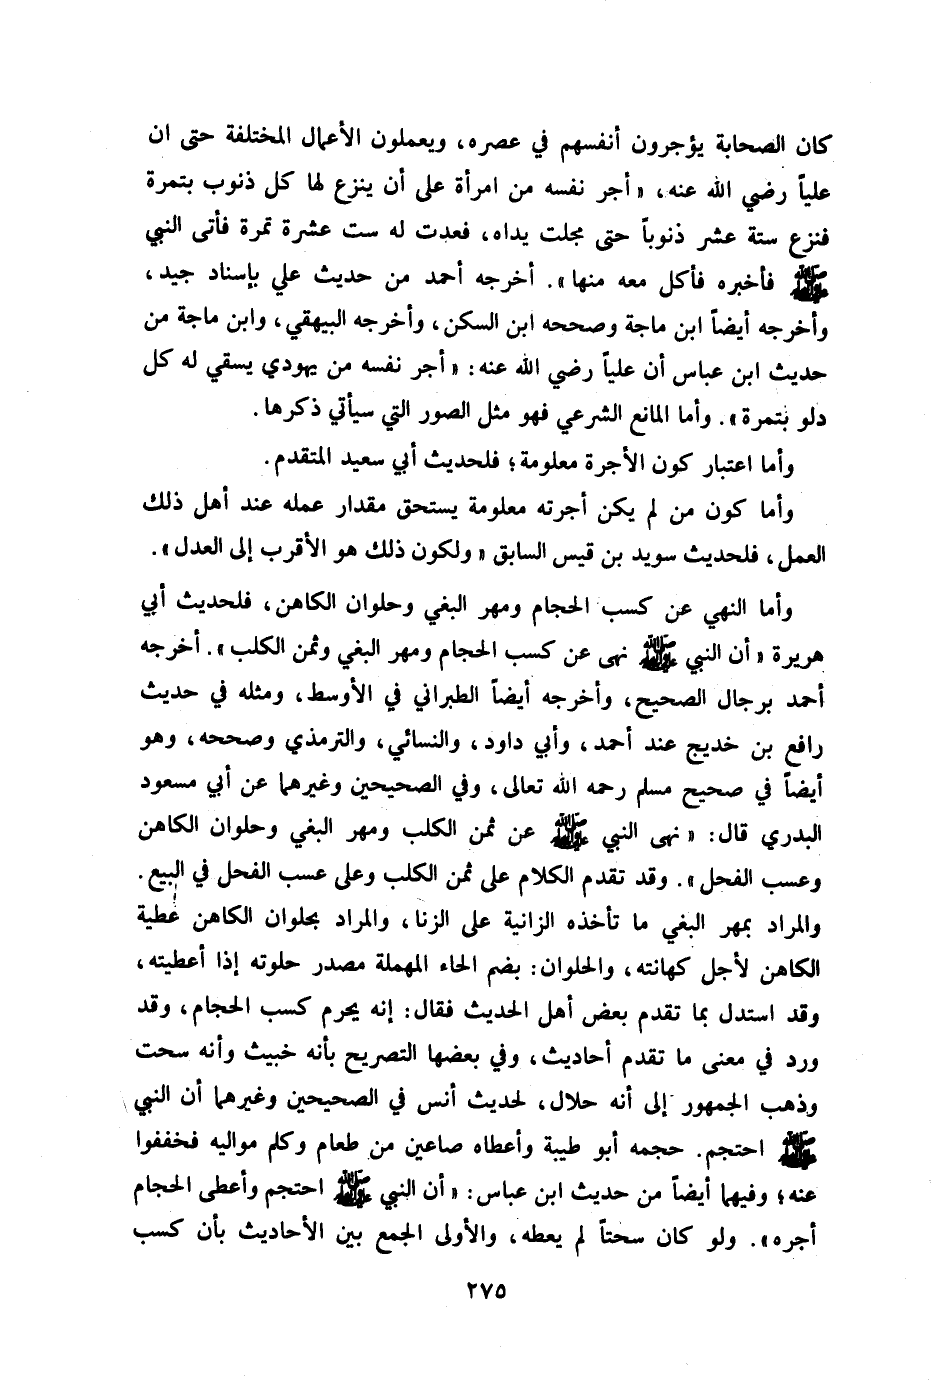 كان الصحابة يؤجرون أنفسهم في عصره، ويعملون الأعمال المختلفة حتى ان
علياً رضي الله عنه، « أجر نفسه من امرأة على أن ينزع لها كل ذنوب بتمرة
فنزع ستة عشر ذنوباً حتى مجلت يداه، فعدت له ست عشرة تمرة فأتى النبي
ﷺ فأخبره فأكل معه منها ». أخرجه أحمد من حديث علي بإسناد جيد،
وأخرجه أيضاً ابن ماجة وصححه ابن السكن، وأخرجه البيهقي، وابن ماجة من
حديث ابن عباس أن علياً رضي الله عنه: « أجر نفسه من يهودي يسقي له كل
دلو بتمرة ». وأما المانع الشرعي فهو مثل الصور التي سيأتي ذكرها.
وأما اعتبار كون الأجرة معلومة؛ فلحديث أبي سعيد المتقدم.
وأما كون من لم يكن أجرته معلومة يستحق مقدار عمله عند أهل ذلك
العمل، فلحديث سويد بن قيس السابق « ولكون ذلك هو الأقرب إلى العدل ».
وأما النهي عن كسب الحجام ومهر البغي وحلوان الكاهن، فلحديث أبي
هريرة « أن النبي ﷺ نهى عن كسب الحجام ومهر البغي وثمن الكلب ». أخرجه
أحمد برجال الصحيح، وأخرجه أيضاً الطبراني في الأوسط، ومثله في حديث
رافع بن خديج عند أحمد، وأبي داود، والنسائي، والترمذي وصححه، وهو
أيضاً في صحيح مسلم رحمه الله تعالى، وفي الصحيحين وغيرهما عن أبي مسعود
البدري قال: « نهى النبي ﷺ عن ثمن الكلب ومهر البغي وحلوان الكاهن
وعسب الفحل ». وقد تقدم الكلام على ثمن الكلب وعلى عسب الفحل في البيع.
والمراد بمهر البغي ما تأخذه الزانية على الزنا، والمراد بحلوان الكاهن عطية
الكاهن لأجل كهانته، والحلوان: بضم الحاء المهملة مصدر حلوته إذا أعطيته،
وقد استدل بما تقدم بعض أهل الحديث فقال: إنه يحرم كسب الحجام، وقد
ورد في معنى ما تقدم أحاديث، وفي بعضها التصريح بأنه خبيث وأنه سحت
وذهب الجمهور إلى أنه حلال، لحديث أنس في الصحيحين وغيرهما أن النبي
ﷺ احتجم. حجمه أبو طيبة وأعطاه صاعين من طعام وكلم مواليه فخففوا
عنه؛ وفيهما أيضاً من حديث ابن عباس: « أن النبي ﷺ احتجم وأعطى الحجام
أجره ». ولو كان سحتاً لم يعطه، والأولى الجمع بين الأحاديث بأن كسب
٢٧٥